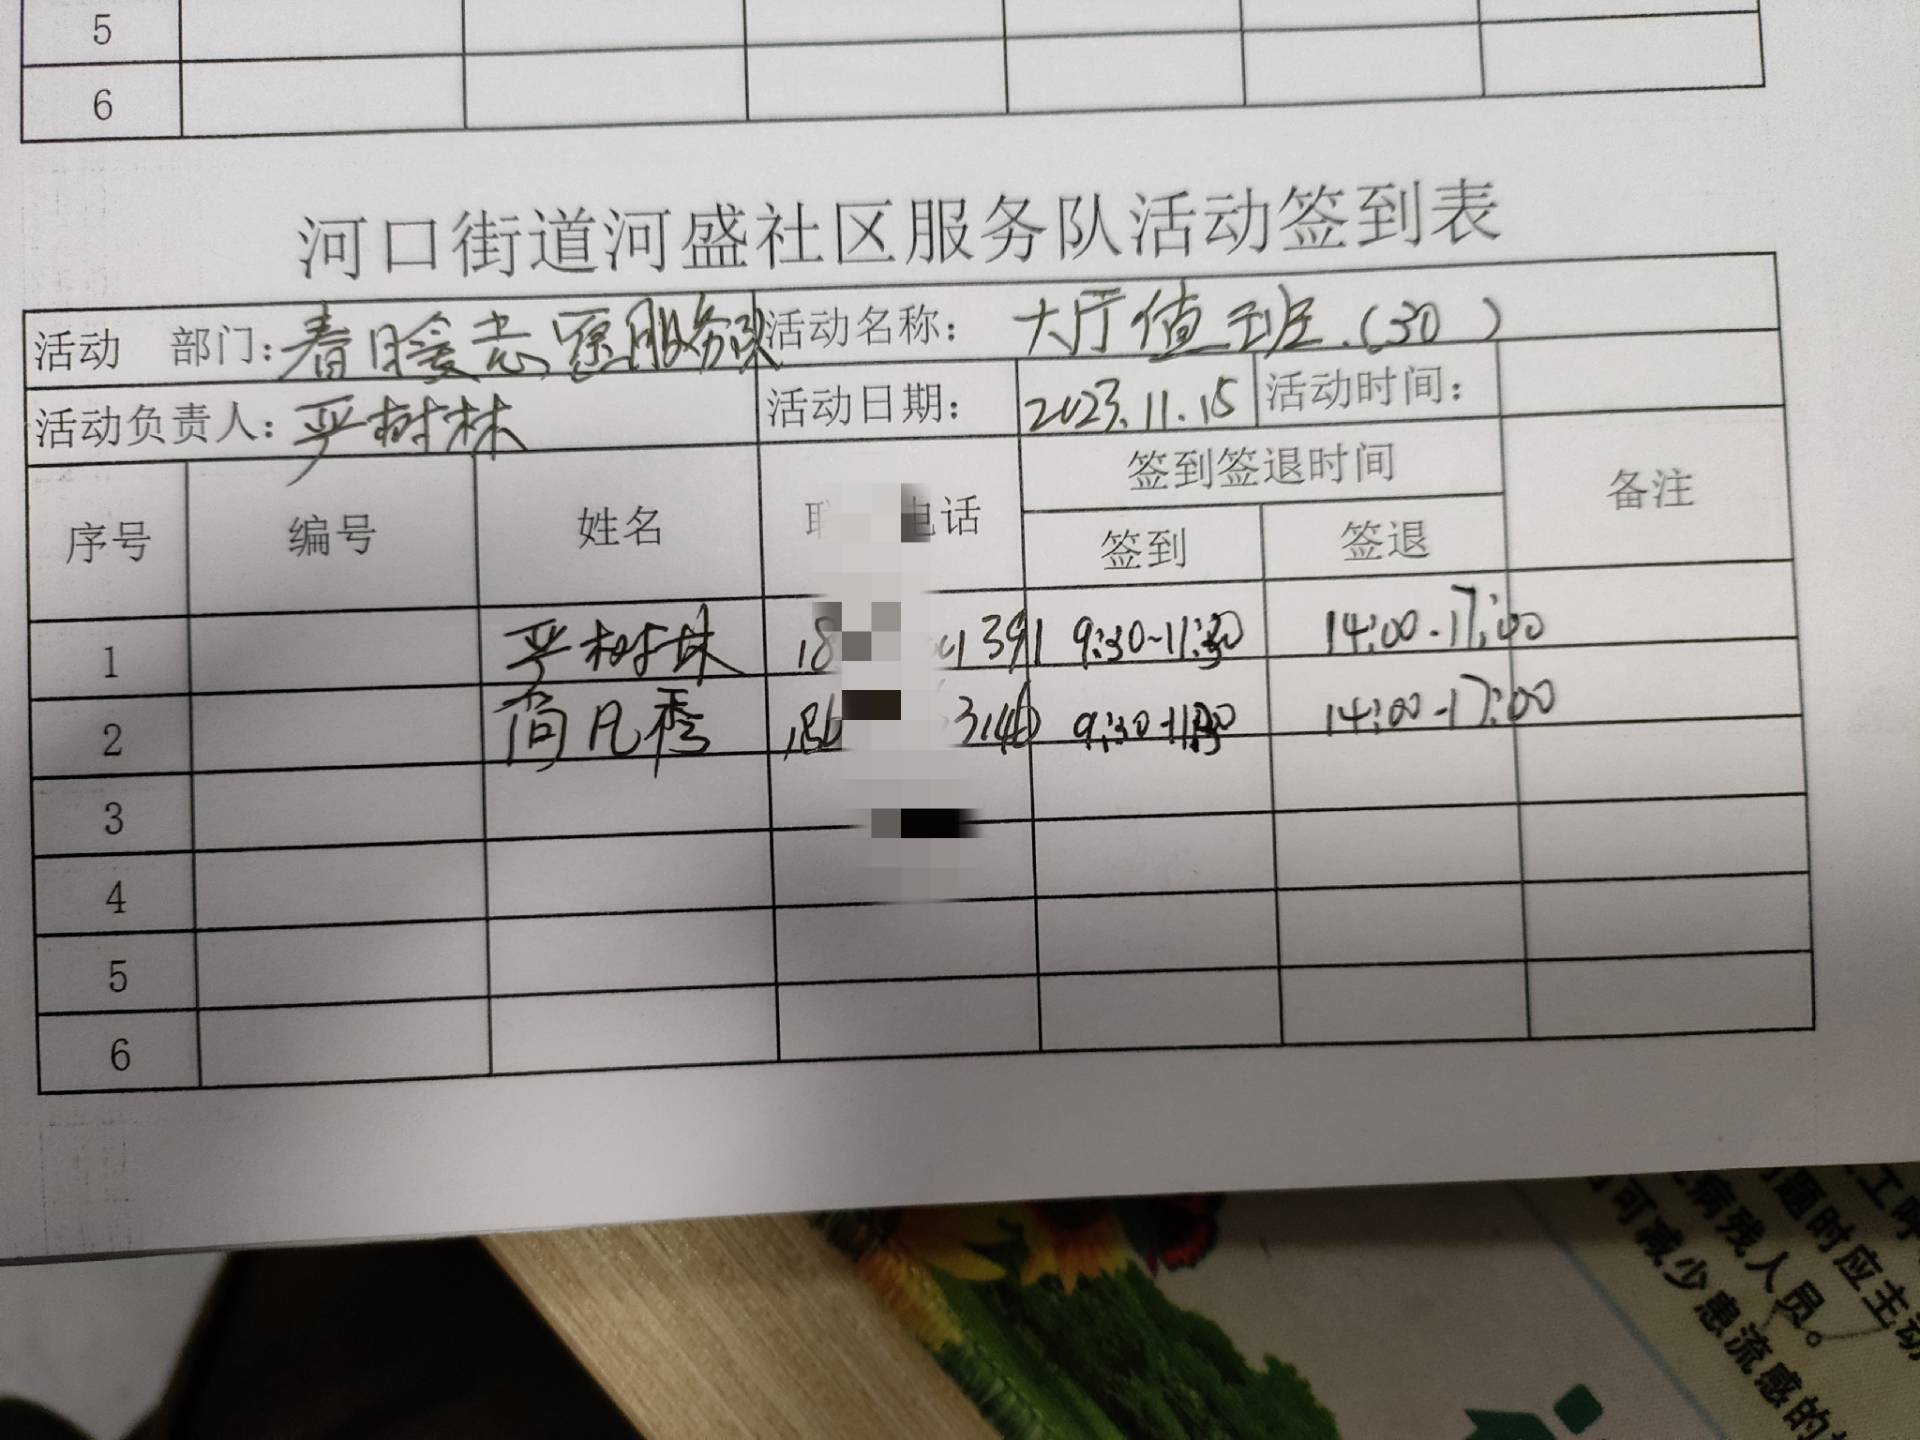 5
6
河口街道河盛社区服务队活动签到表
活动 部门：春日暖志愿服务队 活动名称：大厅值班.(30)
活动负责人：严树林 活动日期：2023.11.15 活动时间：
序号 编号 姓名 电话 签到签退时间 备注
签到 签退
1 严树林 18 1391 9:30-11:30 14:00-17:00
2 简凡秀 186 3146 9:30-11:30 14:00-17:00
3
4
5
6
题时应主动
病残人员。
可减少患流感的